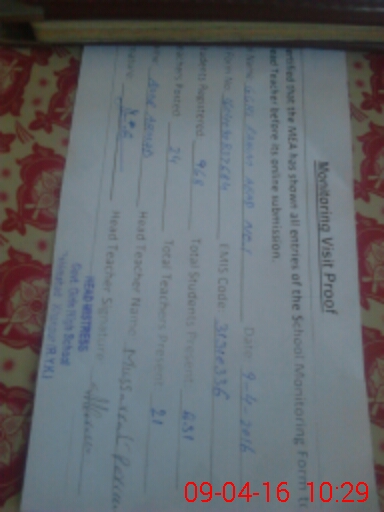 Monitoring Visit Proof
ertified that the MEA has shown all entries of the School Monitoring Form to
ead Teacher before its online submission.
Name: GGHS Date: 9-4-2016
Form No: EMIS Code: 31310336
udents Registered: 968 Total Students Present: 631
eachers Posted: 24 Total Teachers Present: 21
Head Teacher Name: Mussarat
nature: Head Teacher Signature:
HEAD MISTRESS
Govt. Girls High School
R.Y.K)
09-04-16 10:29